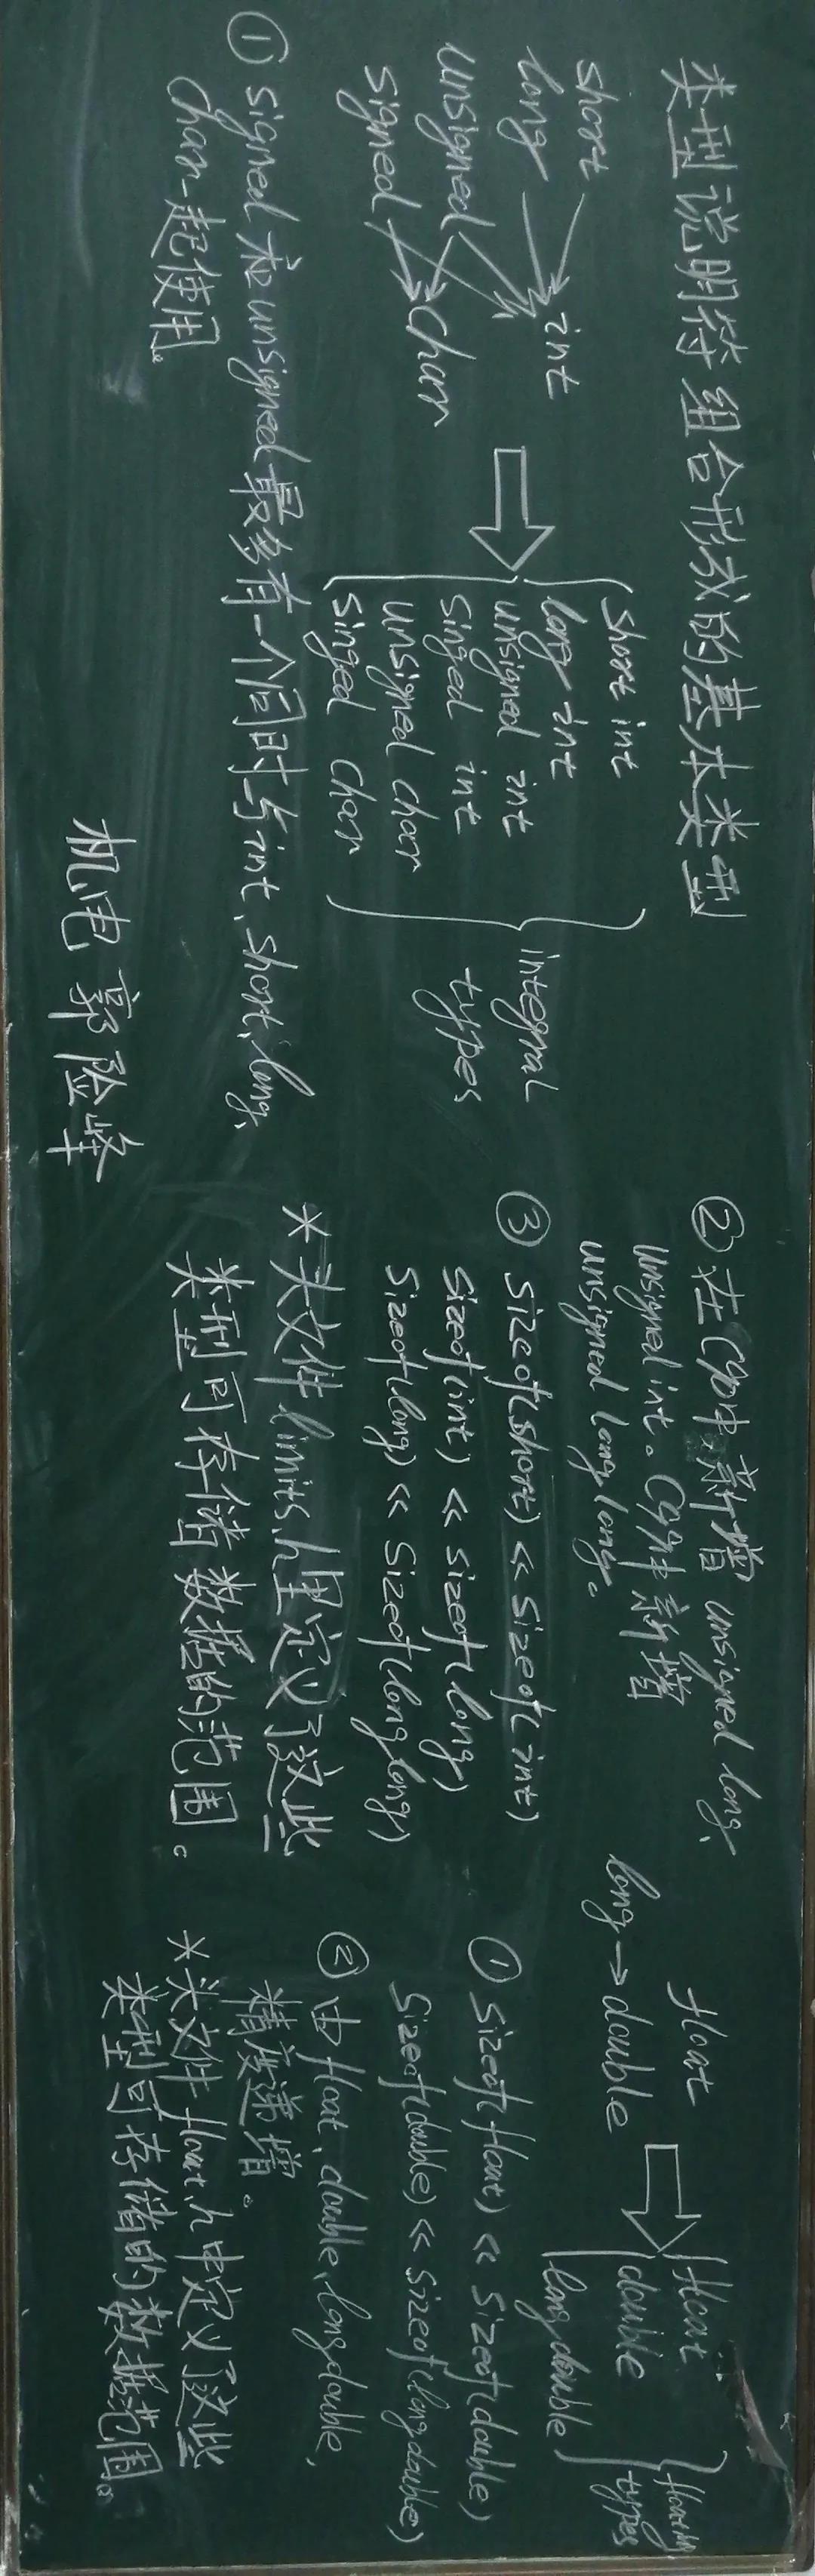 类型说明符组合形成的基本类型
short
long
unsigned
signed
int
char
short int
long int
unsigned int
singed int
unsigned char
singed char
integral
types
① signed 和 unsigned 最多有一个同时与 int、short、long、
char 一起使用。
机电 郭险峰
② 在 C90中新增 unsigned long、
unsigned int。C99中新增
unsigned long long。
③ sizeof(short) << sizeof(int)
sizeof(int) << sizeof(long)
sizeof(long) << sizeof(long long)
* 头文件 limits.h 里定义了这些
类型可存储数据的范围。
float
long → double
float
double
long double
types
① sizeof(float) << sizeof(double)
sizeof(double) << sizeof(long double)
② 由 float、double、long double、
精度递增。
* 头文件 float.h 中定义了这些
类型可存储的数据范围。